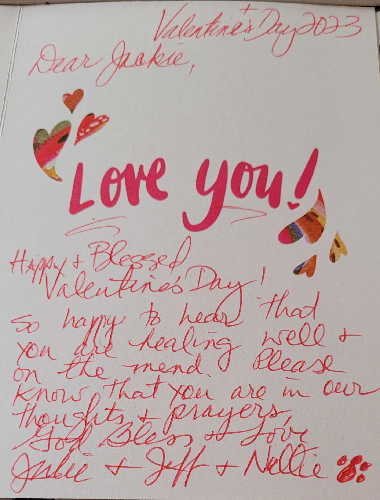 Valentine's Day 2023
Dear Jackie,
Love you!
Happy + Blessed
Valentine's Day!
So happy to hear that
you are healing well +
on the mend. Please
know that you are in our
thoughts + prayers.
God Bless + Love
Julie + Jeff + Nellie